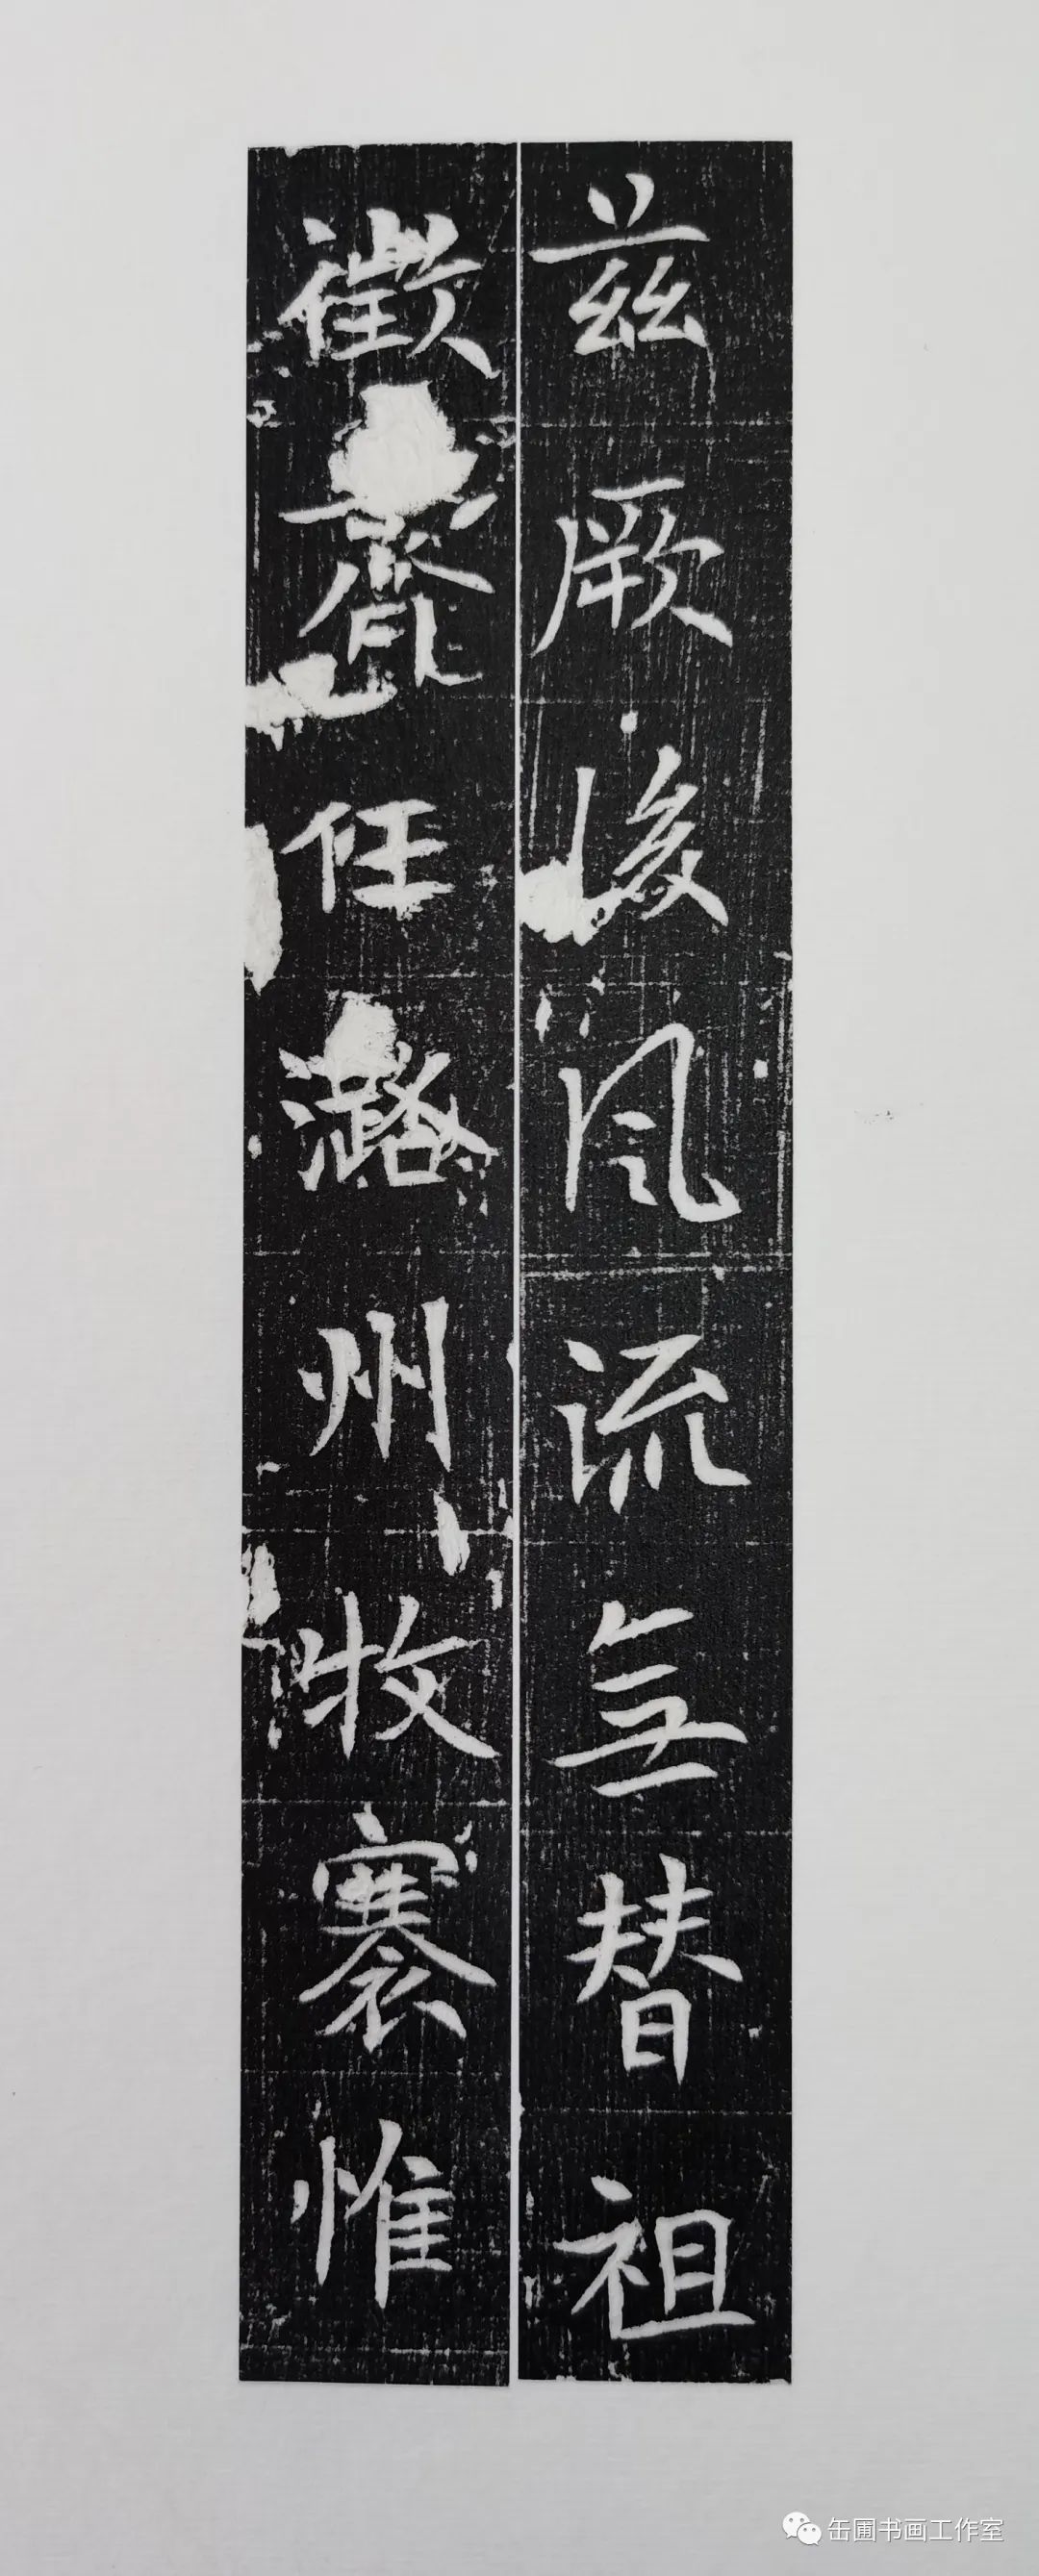 兹厥後風流無替祖
徵齊任潞州牧褰惟
缶圃书画工作室